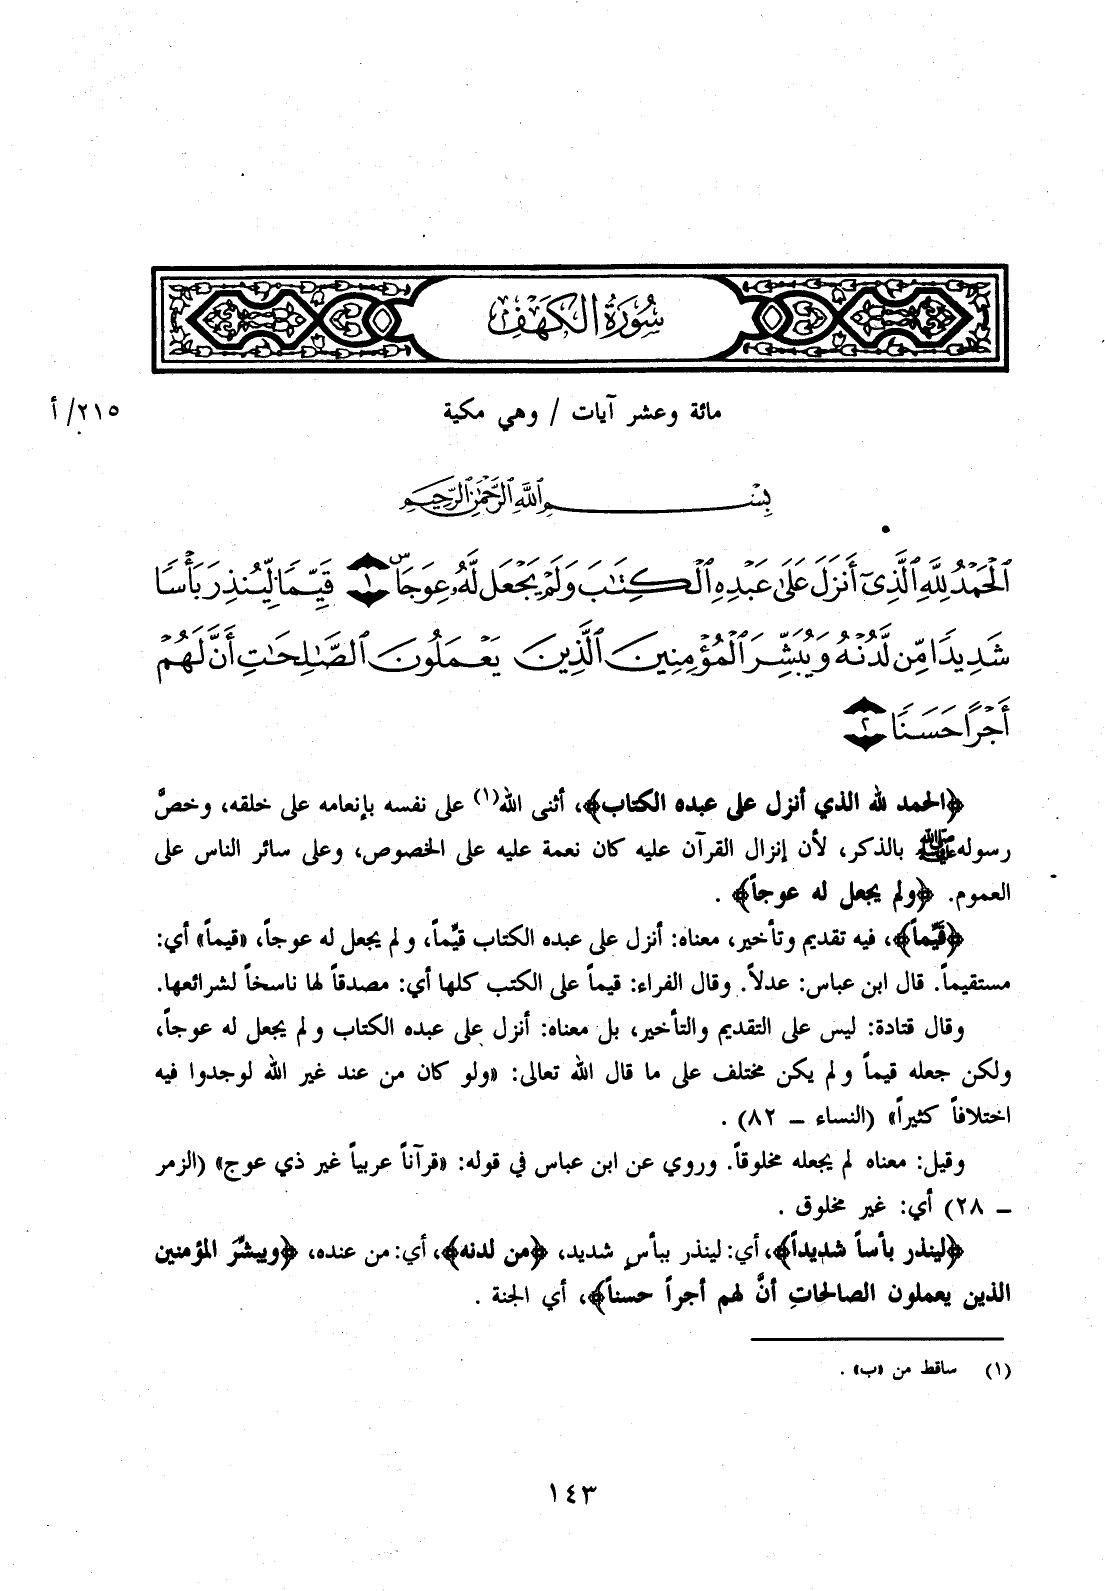 سُورَةُ الكَهْفِ
مائة وعشر آيات / وهي مكية
٢١٥/ أ
بِسْمِ ٱللَّهِ ٱلرَّحْمَٰنِ ٱلرَّحِيمِ
ٱلْحَمْدُ لِلَّهِ ٱلَّذِىٓ أَنزَلَ عَلَىٰ عَبْدِهِ ٱلْكِتَٰبَ وَلَمْ يَجْعَل لَّهُۥ عِوَجَاۜ ١ قَيِّمًا لِّيُنذِرَ بَأْسًا
شَدِيدًا مِّن لَّدُنْهُ وَيُبَشِّرَ ٱلْمُؤْمِنِينَ ٱلَّذِينَ يَعْمَلُونَ ٱلصَّٰلِحَٰتِ أَنَّ لَهُمْ
أَجْرًا حَسَنًا ٢
﴿الحمد لله الذي أنزل على عبده الكتاب﴾، أثنى الله(١) على نفسه بإنعامه على خلقه، وخصَّ
رسوله ﷺ بالذكر، لأن إنزال القرآن عليه كان نعمة عليه على الخصوص، وعلى سائر الناس على
العموم. ﴿ولم يجعل له عوجاً﴾ .
﴿قيِّماً﴾، فيه تقديم وتأخير، معناه: أنزل على عبده الكتاب قيِّماً، ولم يجعل له عوجاً، «قيماً» أي:
مستقيماً. قال ابن عباس: عدلاً. وقال الفراء: قيماً على الكتب كلها أي: مصدقاً لها ناسخاً لشرائعها.
وقال قتادة: ليس على التقديم والتأخير، بل معناه: أنزل على عبده الكتاب ولم يجعل له عوجاً،
ولكن جعله قيماً ولم يكن مختلف على ما قال الله تعالى: «ولو كان من عند غير الله لوجدوا فيه
اختلافاً كثيراً» (النساء – ٨٢) .
وقيل: معناه لم يجعله مخلوقاً. وروي عن ابن عباس في قوله: «قرآناً عربياً غير ذي عوج» (الزمر
– ٢٨) أي: غير مخلوق .
﴿لينذر بأساً شديداً﴾، أي: لينذر ببأسٍ شديد، ﴿من لدنه﴾، أي: من عنده، ﴿ويبشِّرَ المؤمنين
الذين يعملون الصالحاتِ أنَّ لهم أجراً حسناً﴾، أي الجنة .
(١) ساقط من «ب» .
١٤٣